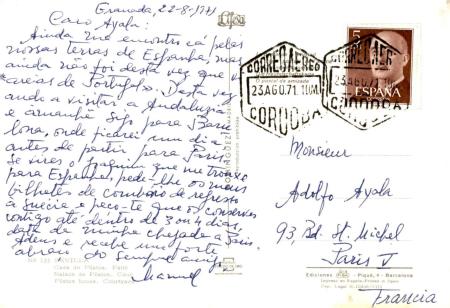 Granada, 22-8-1971
Caro Ayala:
Ainda me encontro cá pelas
nossas terras de Espanha, mas
ainda não foi desta vez que vi
areias de Portugal. Desta vez
ando a visitar a Andaluzia
e amanhã sigo para Barce
lona, onde ficarei um dia
antes de partir para Paris.
Se vires o Joaquim que me trouxe
para Espanha, pede-lhe os meus
bilhetes de comboio de regresso
à Suécia e peço-te que os conserves
contigo até dentro de 3 ou 4 dias,
data de minha chegada a Paris.
Adeus e recebe um forte
abraço do sempre amigo
Manuel
CORREO AEREO
23 AGO.71
CORDOBA
CORREO AER
23 AGO.71
CORDOBA
5
ESPAÑA
Monsieur
Adolfo Ayala
93, Bd. St. Michel
Paris V
Francia
SEVILLA
Casa de Pilatos. Patio
Palace de Pilatos. Cour
Pilatos house. Courtyard
Ediciones
Piqué, 4 - Barcelona